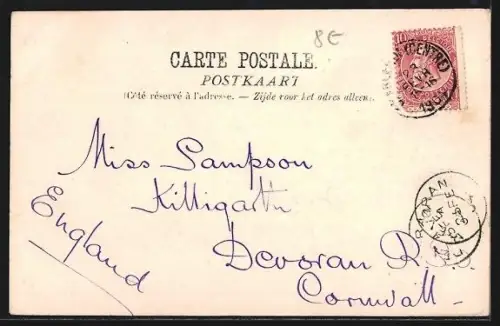 8€
CARTE POSTALE.
POSTKAART
(Côté réservé à l'adresse. — Zijde voor het adres alleen.)
Miss Sampson
Killigarth
Devoran R.S.O.
Cornwall
England